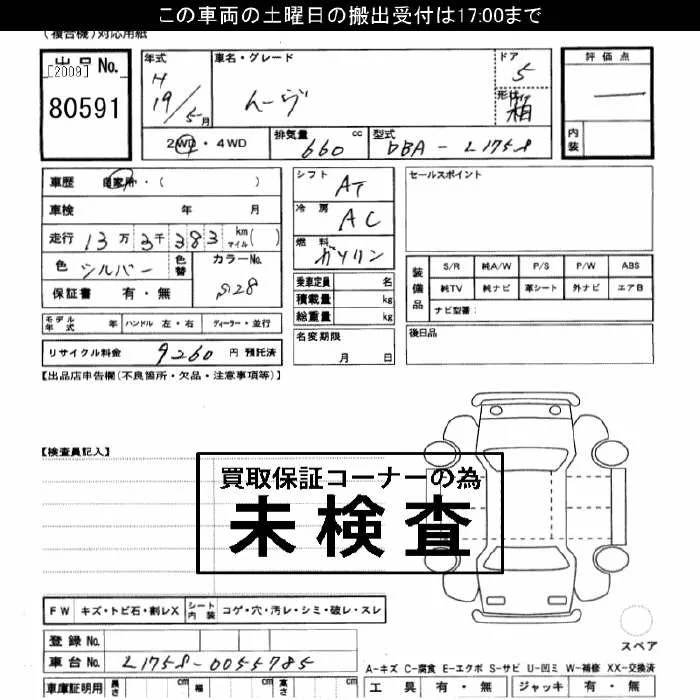 この車両の土曜日の搬出受付は17:00まで
(複合機)対応用紙
出品No.
[2009]
80591
年式
H
19/5月
車名・グレード
ムーヴ
ドア
5
形状
箱
評価点
内装
2WD・4WD
排気量
660 cc
型式
DBA-L175S
車歴 自家用・( )
車検 年 月
走行 13万3千383 km マイル( )
色 シルバー 色替
カラーNo.
S28
保証書 有・無
モデル年式 年 ハンドル 左・右 ディーラー・並行
リサイクル料金 9260 円 預託済
シフト
AT
冷房
AC
燃料
ガソリン
乗車定員 名
積載量 kg
総重量 kg
名変期限
月 日
セールスポイント
装備品
S/R 純A/W P/S P/W ABS
純TV 純ナビ 革シート 外ナビ エアB
ナビ型番:
後日品
【出品店申告欄(不良箇所・欠品・注意事項等)】
【検査員記入】
買取保証コーナーの為
未検査
FW キズ・トビ石・割レX シート内装 コゲ・穴・汚レ・シミ・破レ・スレ
登録No.
車台No. L175S-0055785
車庫証明用 長さ cm 幅 cm 高さ cm
スペア
A-キズ C-腐食 E-エクボ S-サビ U-凹ミ W-補修 XX-交換済
工具 有・無 ジャッキ 有・無